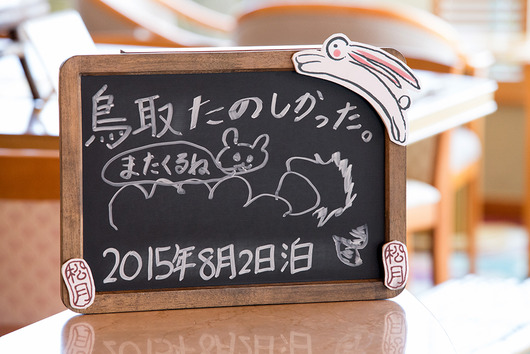 鳥取たのしかった。
またくるね
2015年8月2日泊
松月
松月